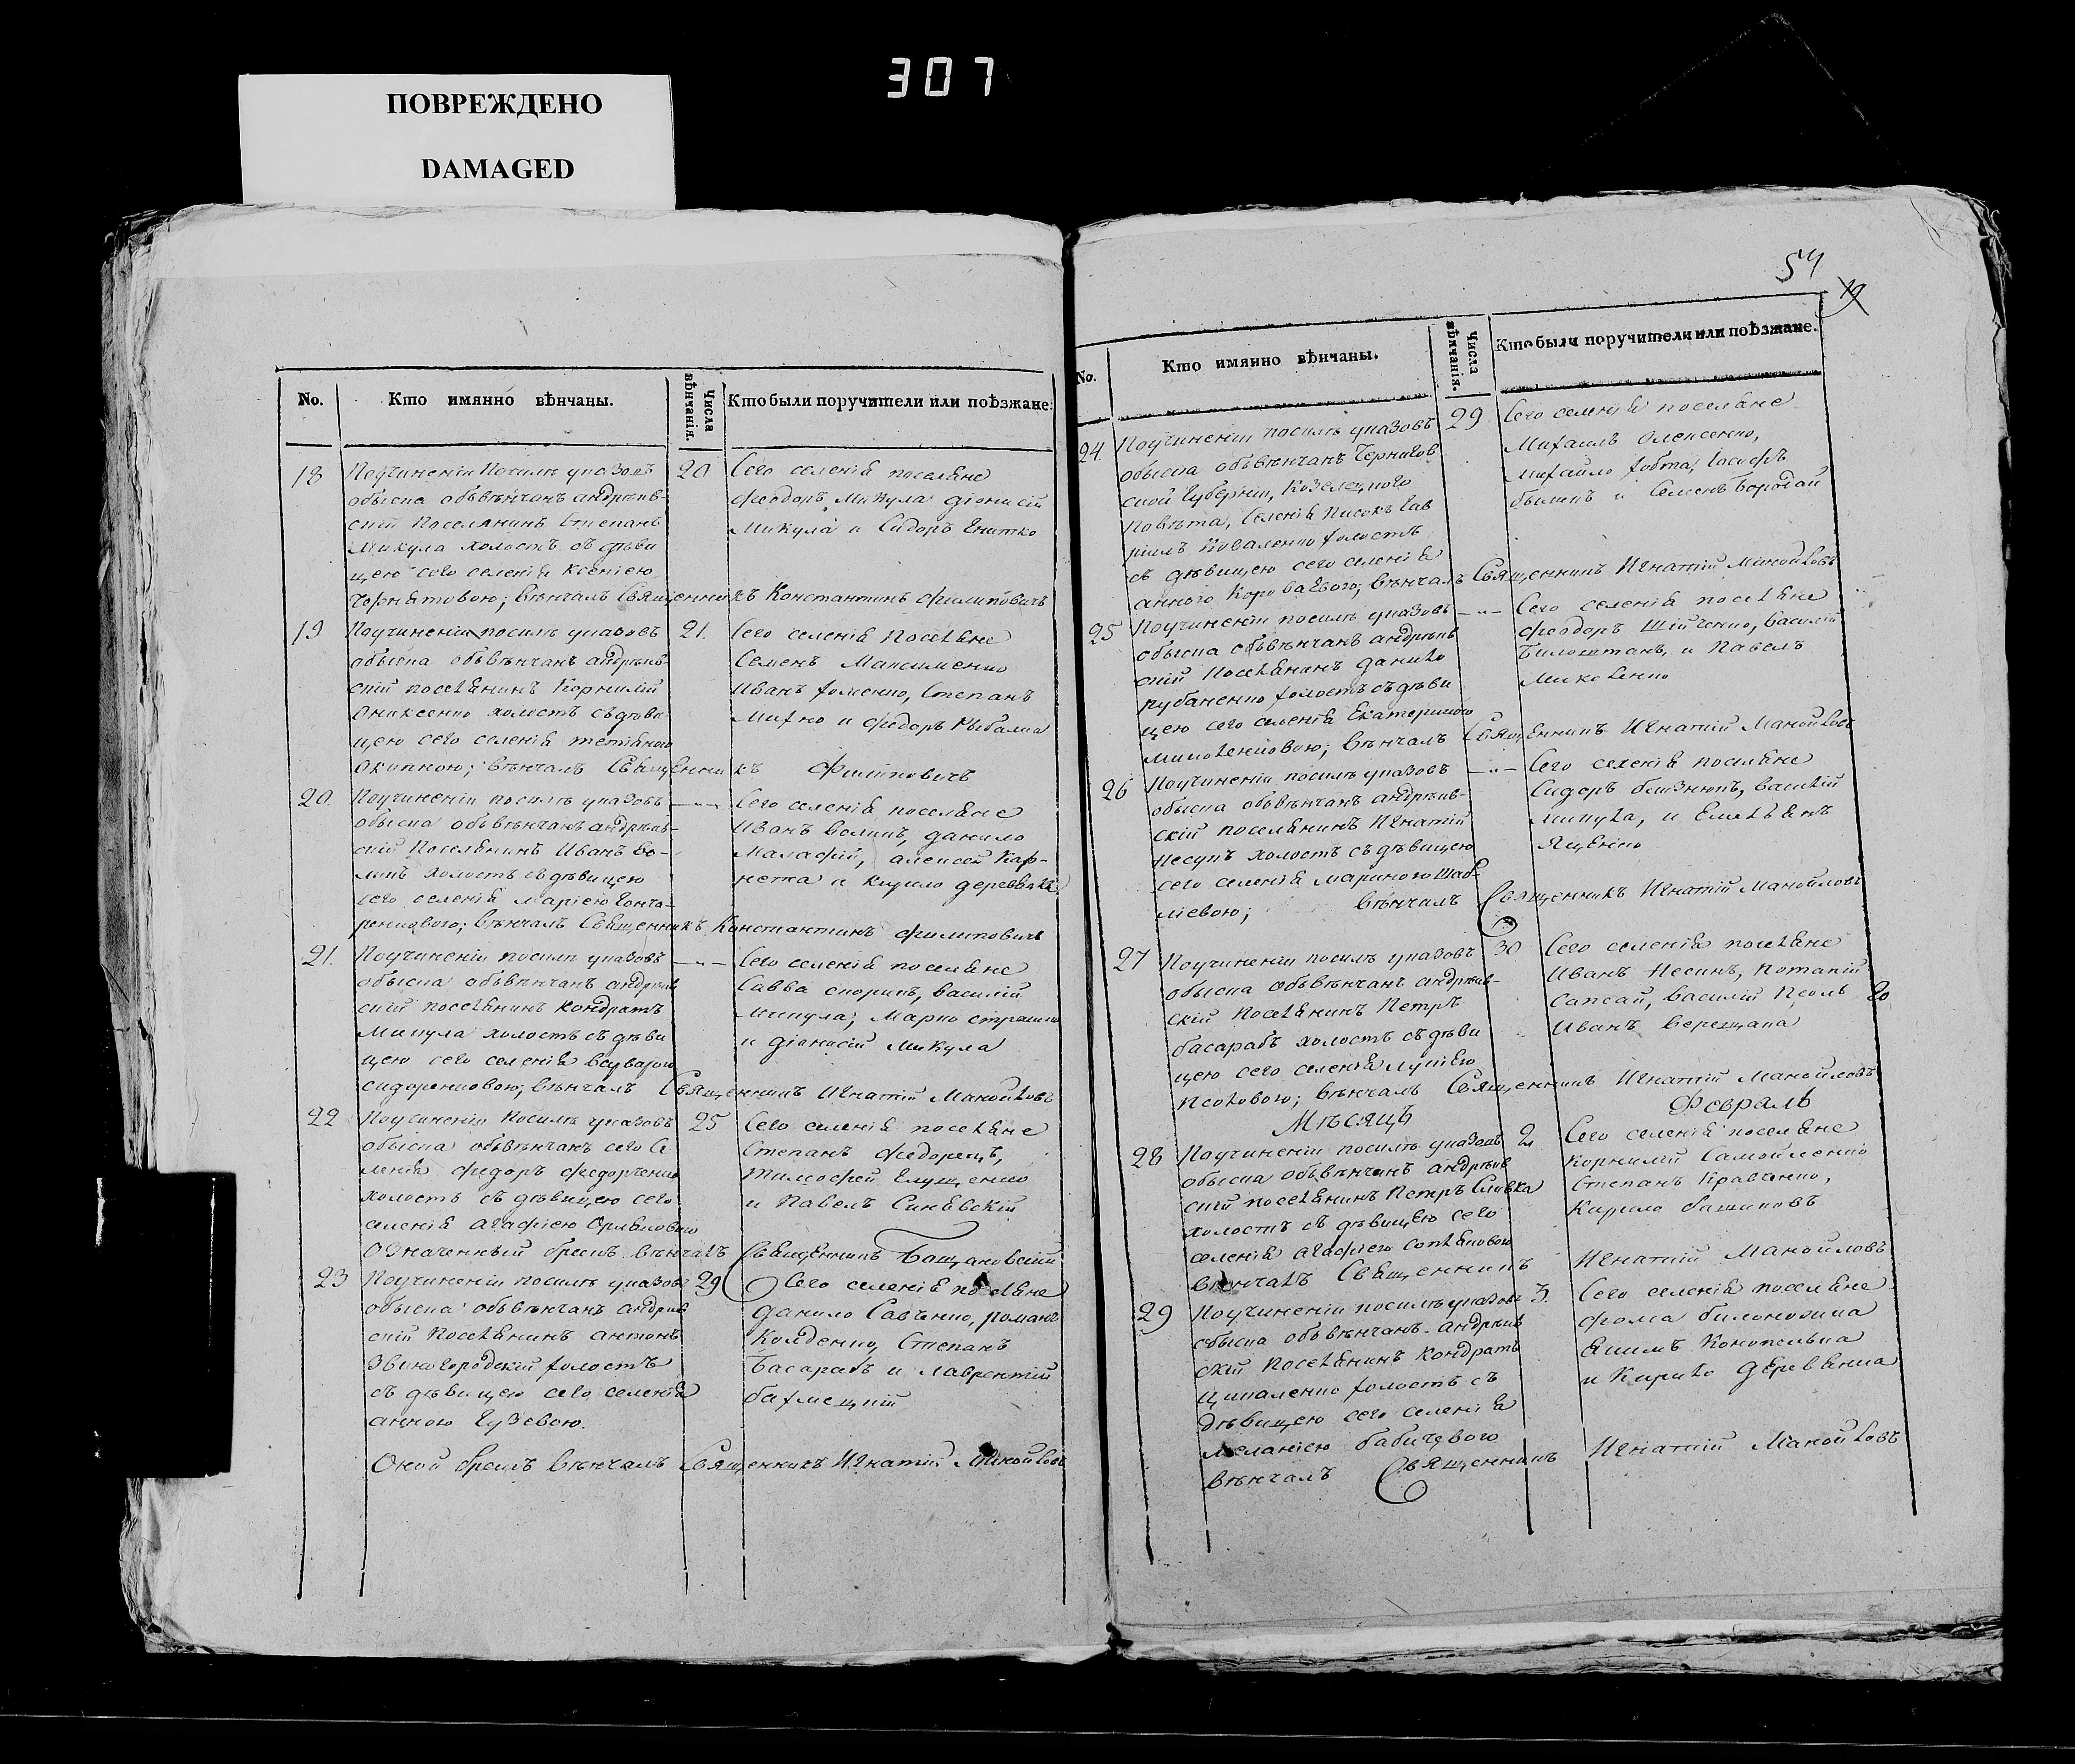 307
ПОВРЕЖДЕНО
DAMAGED
No.
Кто имянно вѣнчаны.
Числа вѣнчанія.
Кто были поручители или поѣзжане.
18
Поучиненіи посилѣ указовъ
обыска обвѣнчанъ андрѣев-
скій Поселянинъ Степанъ
Микула холостъ съ дѣви
цею сего селенія Ксеніею
вѣнчалъ Священникъ Константинъ Филиповичъ
20
Сего селенія поселяне
Феодоръ Микула діонисій
Микула и Сидоръ
19
Поучиненіи посилѣ указовъ
обыска обвѣнчанъ андрѣев-
скій поселянинъ Корнилій
холостъ съ дѣви
цею сего селенія
вѣнчалъ Священникъ Филиповичъ
21.
Сего селенія Поселяне
Семенъ Максименко
Иванъ Хоменко, Степанъ
Михно и Федоръ
20.
Поучиненіи посилѣ указовъ
обыска обвѣнчанъ андрѣев-
скій Поселянинъ Иванъ Во-
холостъ съ дѣвицею
сего селенія Маріею Гонча-
ренковою; вѣнчалъ Священникъ Константинъ Филиповичъ
— „ —
Сего селенія поселяне
Иванъ данило
Малафій, алексей Кар-
и Кирило
21.
Поучиненіи посилѣ указовъ
обыска обвѣнчанъ андрѣев
скій поселянинъ Кондратъ
Микула холостъ съ дѣви
цею сего селенія
сидоренковою; вѣнчалъ Священникъ Игнатій Манойловъ
— „ —
Сего селенія поселяне
Савва скорикъ, василій
микула, Марко
и діонисій Микула
22
Поучиненіи посилѣ указовъ
обыска обвѣнчанъ сего се
ленія Федоръ Федорченко
холостъ съ дѣвицею сего
селенія агафіею
Означенный бракъ вѣнчалъ Священникъ Бащановскій
25
Сего селенія поселяне
Степанъ Федорецъ,
Тимофей
и Павелъ Синѣвскій
23
Поучиненіи посилѣ указовъ
обыска обвѣнчанъ андрѣев
скій Поселянинъ антонъ
Звиногородскій холостъ
съ дѣвицею сего селенія
анною Гузевою.
Оной бракъ вѣнчалъ Священникъ Игнатій Манойловъ
29
Сего селенія поселяне
данило Савченко, романъ
Степанъ
Басарабъ и лаврентій
бахмецкій
54
19
No.
Кто имянно вѣнчаны.
Числа вѣнчанія.
Кто были поручители или поѣзжане.
24.
Поучиненіи посилѣ указовъ
обыска обвѣнчанъ Чернигов
ской Губерніи, Козелецкого
Повѣта, селенія Пиcокъ Гав
ріилъ Коваленко холостъ
съ дѣвицею сего селенія
анною вѣнчалъ Священникъ Игнатій Манойловъ
29
Сего селенія поселяне
Михаилъ Олексенко,
михайло Іосифъ
и Семенъ Бородай
25
Поучиненіи посилѣ указовъ
обыска обвѣнчанъ андрѣев
скій Поселянинъ данило
рубаненко холостъ съ дѣви
цею сего селенія Екатериною
вѣнчалъ Священникъ Игнатій Манойловъ
— „ —
Сего селенія поселяне
феодоръ василій
Билоштанъ, и Павелъ
26
Поучиненіи посилѣ указовъ
обыска обвѣнчанъ андрѣев-
скій поселянинъ Игнатій
Несунъ холостъ съ дѣвицею
сего селенія Мариною Шаб-
ліевою; вѣнчалъ Священникъ Игнатій Манойловъ
— „ —
Сего селенія поселяне
Сидоръ близнюкъ, василій
микула, и Емельянъ
Ященко
27
Поучиненіи посилѣ указовъ
обыска обвѣнчанъ андрѣев-
скій Поселянинъ Петръ
басарабъ холостъ съ дѣви
цею сего селенія
Псоловою; вѣнчалъ Священникъ Игнатій Манойловъ
30
Сего селенія поселяне
Иванъ Несинъ, Потапій
Сапсай, василій Псолъ
Иванъ Верещака
Мѣсяцъ Февраль
28
Поучиненіи посилѣ указовъ
обыска обвѣнчанъ андрѣев
скій поселянинъ Петръ Сливка
холостъ съ дѣвицею сего
селенія агафіею
вѣнчалъ Священникъ Игнатій Манойловъ
2
Сего селенія поселяне
Корнилій Самойленко
Степанъ Кравченко,
Кирило
29
Поучиненіи посилѣ указовъ
обыска обвѣнчанъ андрѣев
скій Поселянинъ Кондратъ
Ципаленко холостъ съ
дѣвицею сего селенія
меланіею бабичевою
вѣнчалъ Священникъ Игнатій Манойловъ
3.
Сего селенія поселяне
фома билоножка
Екимъ Конопелька
и Кирило деревянка